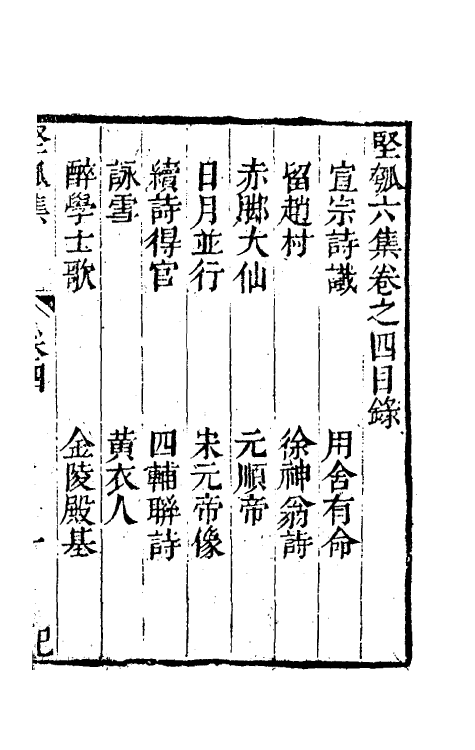 堅瓠六集卷之四目錄
宣宗詩讖　用舍有命
留趙村　徐神翁詩
赤腳大仙　元順帝
日月並行　宋元帝像
續詩得官　四輔聯詩
詠雪　黃衣人
醉學士歌　金陵殿基
堅瓠集　卷四